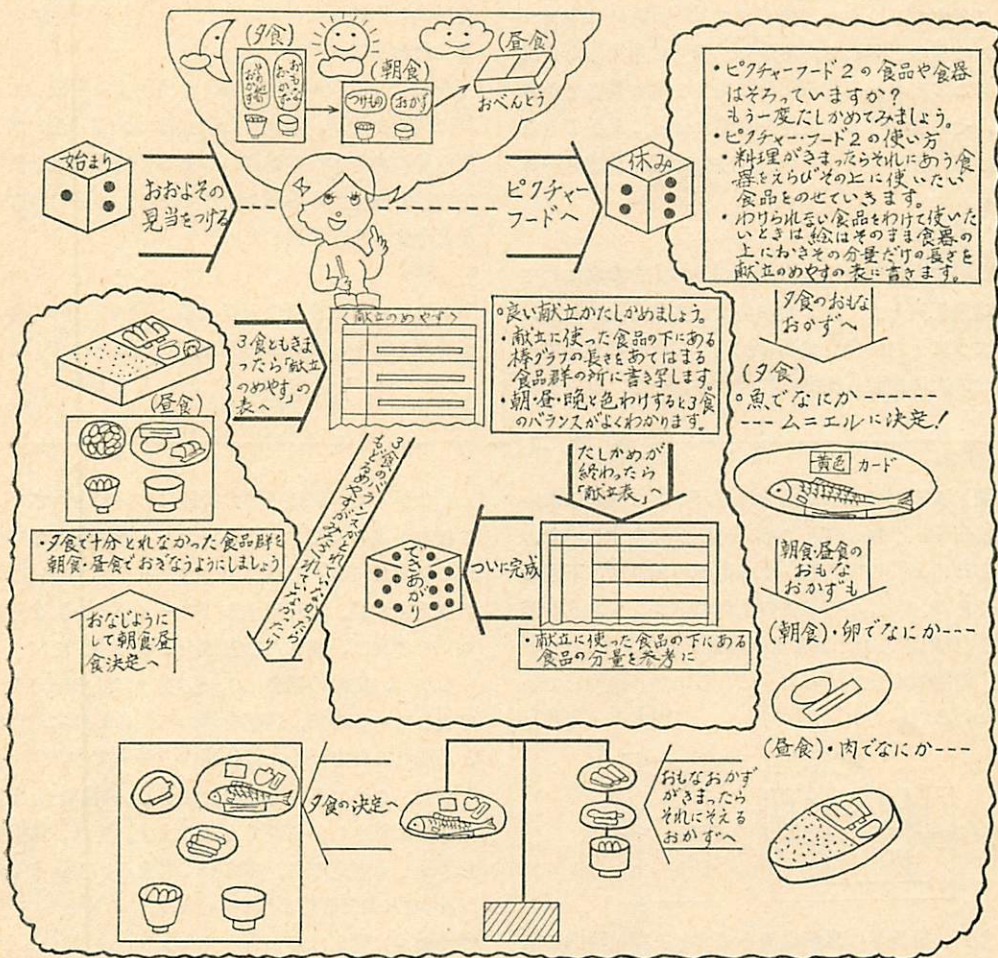 (夕食)
(朝食)
(昼食)
おもなおかず
つけもの
おかず
おべんとう
始まり
おおよその
見当をつける
ピクチャー
フードへ
休み
・ピクチャーフード2の食品や食器
はそろっていますか?
もう一度たしかめてみましょう。
・ピクチャー・フード2の使い方
・料理がきまったらそれにあう食
器をえらびその上に使いたい
食品をのせていきます。
・わけられない食品をわけて使いた
いときは絵はそのまま食器の
上におきその分量だけの長さを
献立のめやすの表に書きます。
夕食のおもな
おかずへ
(夕食)
○魚でなにか------
---ムニエルに決定!
黄色 カード
朝食・昼食の
おもな
おかずも
(朝食)・卵でなにか---
(昼食)・肉でなにか---
おもなおかず
がきまったら
それにそえる
おかずへ
夕食の決定へ
おなじように
して朝食・昼
食決定へ
・夕食で十分とれなかった食品群を
朝食・昼食でおぎなうようにしましょう
(昼食)
3食ともきま
ったら「献立
のめやす」の
表へ
<献立のめやす>
○良い献立かたしかめましょう。
・献立に使った食品の下にある
棒グラフの長さをあてはまる
食品群の所に書き写します。
・朝・昼・晩と色わけすると3食
のバランスがよくわかります。
3食のバランスがとれていなかったり
めやすがみたされていなかったら
もどる
たしかめが
終わったら
「献立表」へ
・献立に使った食品の下にある
食品の分量を参考に
ついに完成
できあがり